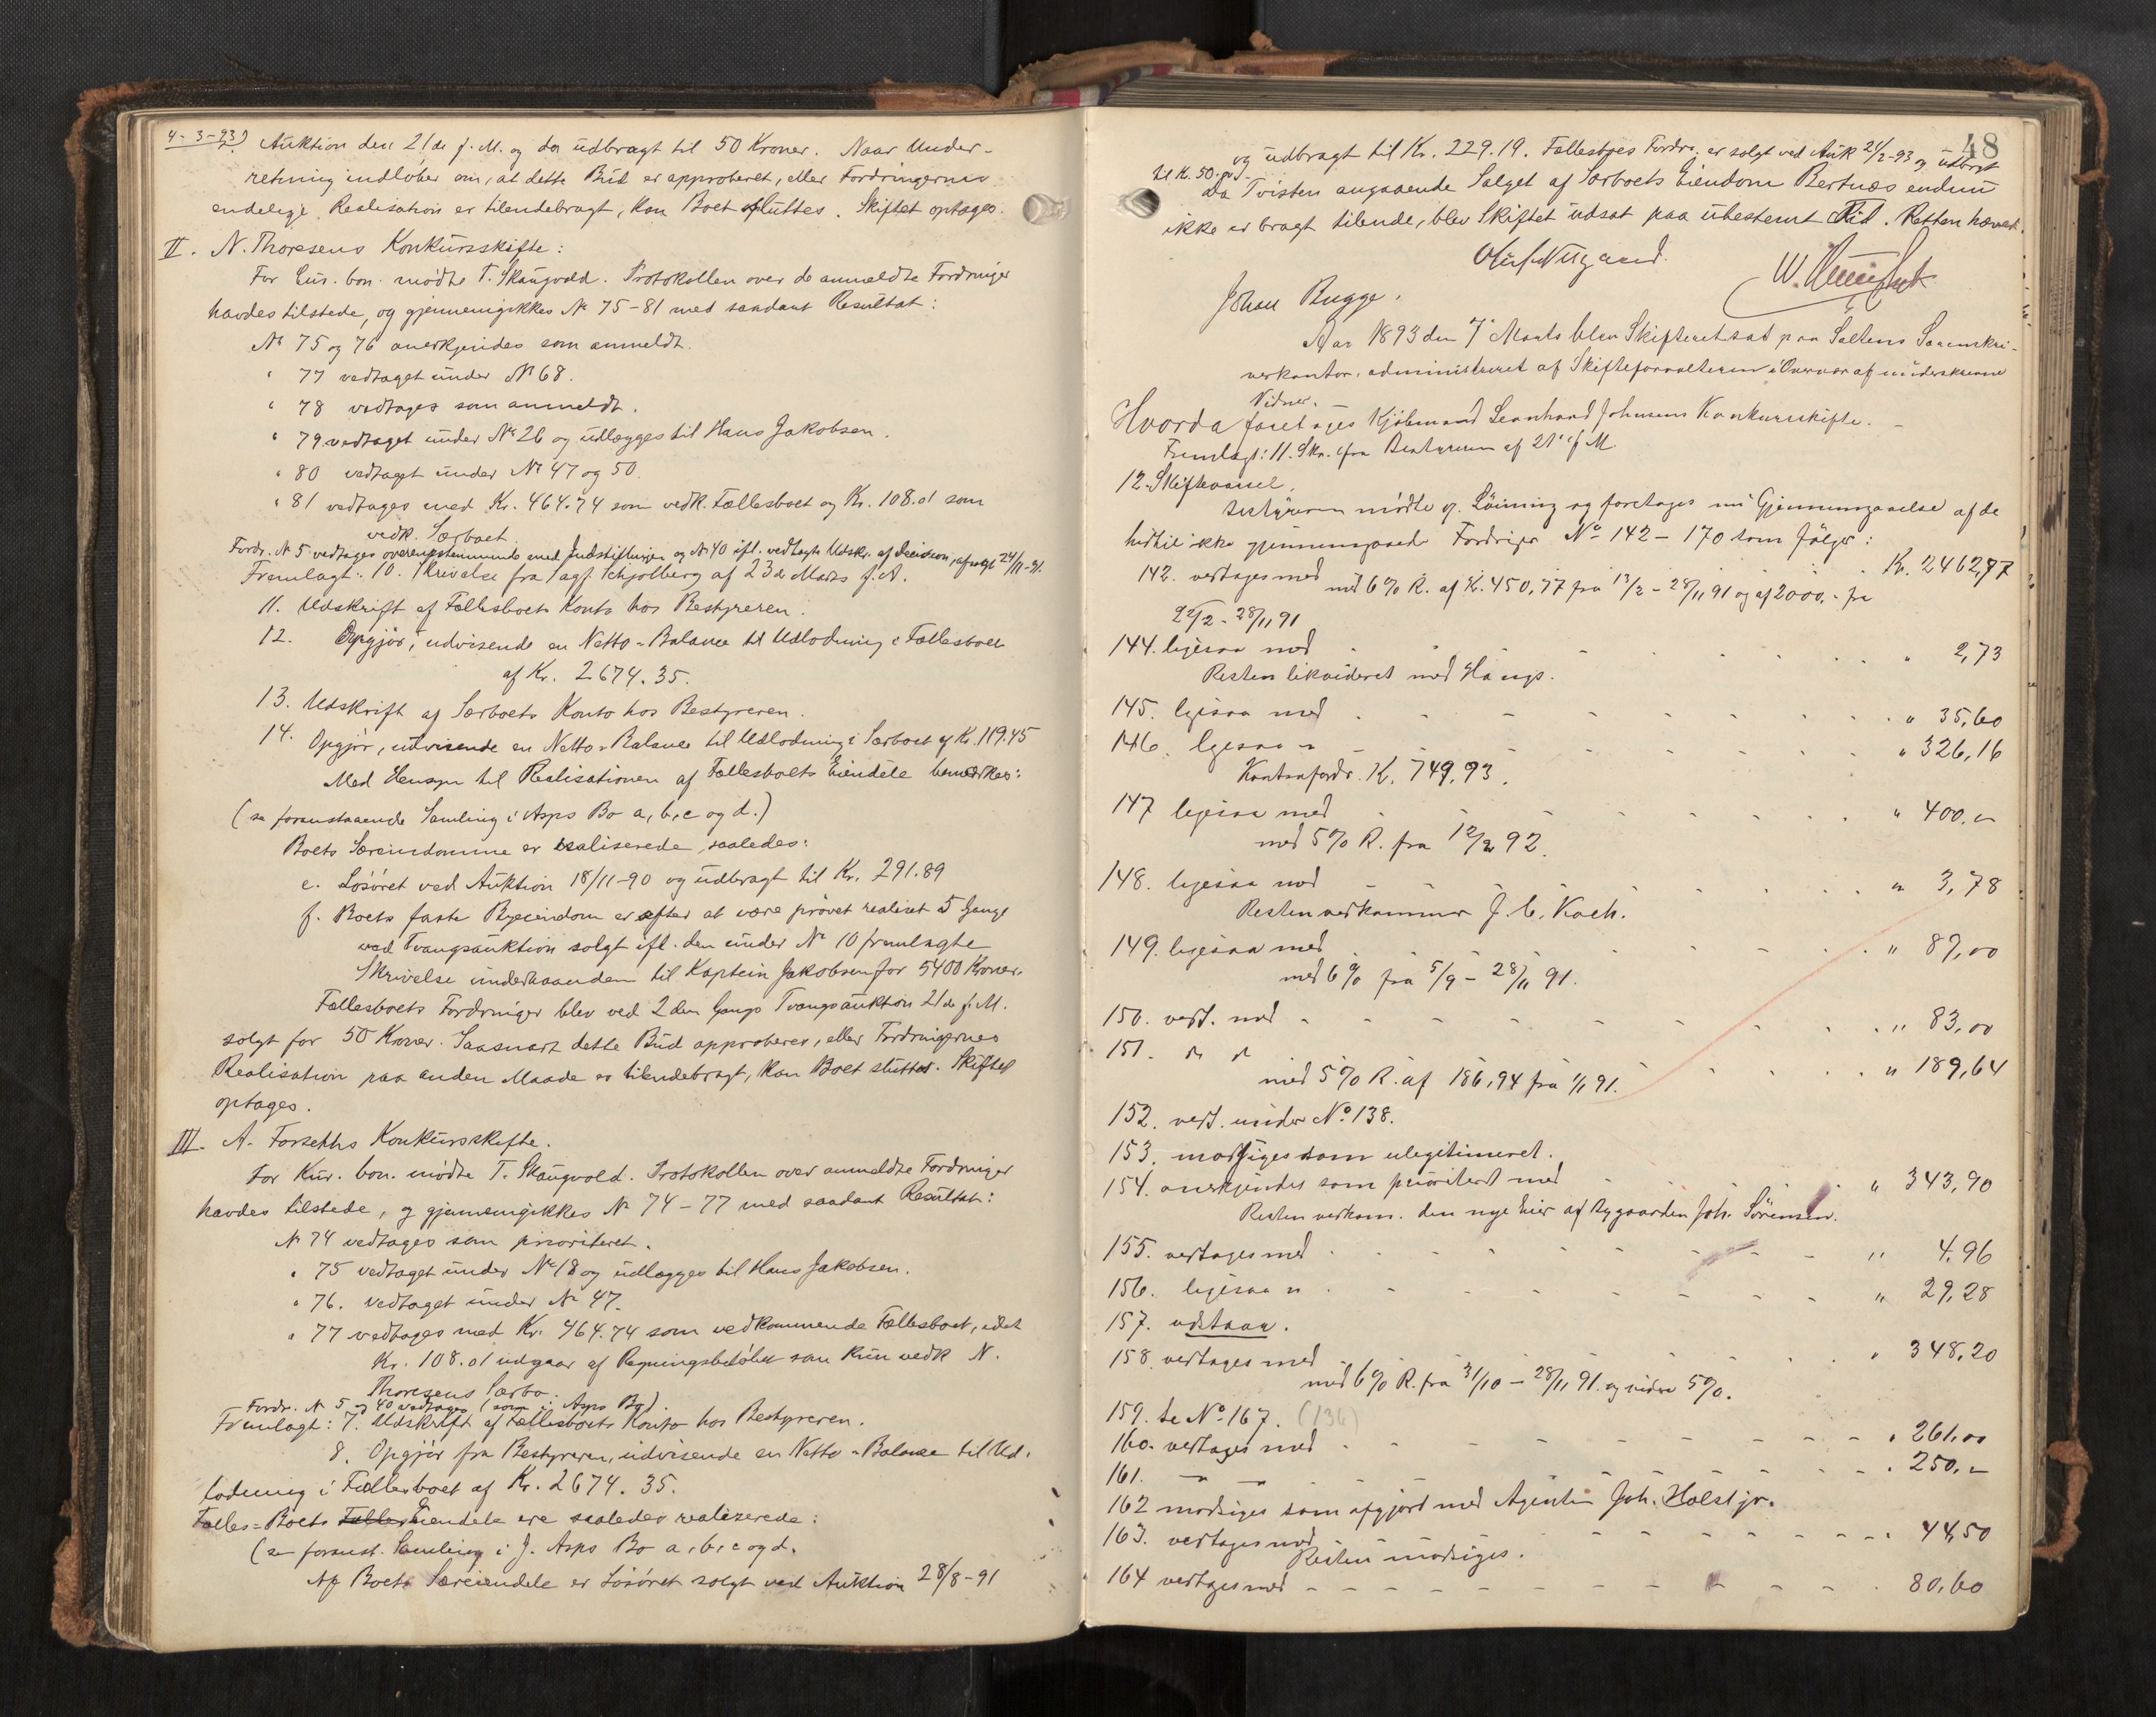 4-3-93) Auktion den 21de f. M. og da udbragt til 50 Kroner. Naar Under-
retning indløber om, at dette Bud er approberet, eller Fordringernes
endelige Realisation er tilendebragt, kan Boet sluttes. Skiftet optages.
II. N. Thoresens Konkursskifte:
For Cur. bon. mødte T. Skaugvold. Protokollen over de anmeldte Fordringer
havdes tilstede, og gjennemgikkes No 75-81 med saadant Resultat:
No 75 og 76 anerkjendes som anmeldt.
" 77 vedtaget under No 68.
" 78 vedtages som anmeldt.
" 79 vedtaget under No 26 og udlægges til Hans Jakobsen.
" 80 vedtaget under No 47 og 50.
" 81 vedtages med Kr. 464.74 som vedk. Fællesboet og Kr. 108.01 som
vedk. Særboet.
Fordr. No 5 vedtages overensstemmende med Indstillingen og No 40 ifl. vedtagts Udskr. af Decision, afsagt 24/11-91.
Fremlagt: 10. Skrivelse fra Sagf. Schjølberg af 23de Marts f. A.
11. Udskrift af Fællesboets Konto hos Bestyreren.
12. Opgjør, udvisende en Netto-Balance til Udlodning i Fællesboet
af Kr. 2674.35.
13. Udskrift af Særboets Konto hos Bestyreren.
14. Opgjør, udvisende en Netto-Balance til Udlodning i Særboet af Kr. 119.45
Med Hensyn til Realisationen af Fællesboets Eiendele bemærkes:
(se foranstaaende Samling i Asps Bo a, b, c og d.)
Boets Særeiendomme er realiserede saaledes:
e. Løsøret ved Auktion 18/11-90 og udbragt til Kr. 291.89
f. Boets faste Byeiendom er efter at være prøvet realiset 5 Gange
ved Tvangsauktion solgt ifl. den under No 10 fremlagte
Skrivelse underhaanden til Kaptein Jakobsen for 5400 Kroner.
Fællesboets Fordringer blev ved 2den Gangs Tvangsauktion 21de f. M.
solgt for 50 Kroner. Saasnart dette Bud approberes, eller Fordringernes
Realisation paa anden Maade er tilendebragt, kan Boet sluttes. Skiftet
optages.
III. A. Forseths Konkursskifte.
For Kur. bon. mødte T. Skaugvold. Protokollen over anmeldte Fordringer
havdes tilstede, og gjennemgikkes No 74-77 med saadant Resultat:
No 74 vedtages som prioriteret.
" 75 vedtaget under No 18 og udlægges til Hans Jakobsen.
" 76. vedtaget under No 47.
" 77 vedtages med Kr. 464.74 som vedkommende Fællesboet, idet
Kr. 108.01 udgaar af Regningsbeløbet som kun vedk N.
Thoresens Særbo.
Fordr. No 5 og 40 vedtages (som i Asps Bo).
Fremlagt: 7. Udskrift af Fællesboets Konto hos Bestyreren.
8. Opgjør fra Bestyreren, udvisende en Netto-Balance til Ud-
lodning i Fællesboet af Kr. 2674.35.
Fælles-Boets Fælles Eiendele ere saaledes realiserede:
(se foranst. Samling i J. Asps Bo a, b, c og d.
Af Boets Særeiendele er Løsøret solgt ved Auktion 28/8-91
48
og udbragt til Kr. 229.19. Fællesboets Fordr. er solgt ved Auk 21/2-93 og udbragt
til K. 50.
Da Tvisten angaaende Salget af Særboets Eiendom Bertnæs endnu
ikke er bragt tilende, blev Skiftet udsat paa ubestemt Tid. Retten hævet.
Johan Bugge.
Aar 1893 den 7' Marts blev Skifteret sat paa Saltens Sorenskri-
verkontor, administreret af Skifteforvalteren i Overvær af underskrevne
Vidner.
Hvorda foretoges Kjøbmand Leonhard Johnsens Konkursskifte.
Fremlagt: 11. Skr. fra Bestyreren af 21' f. M
12. Skiftevarsel.
Bestyreren mødte og foretages nu Gjennemgaaelse af de
hidtil ikke gjennemgaaede Fordringer No 142-170 som følger:
142. vedtages med Kr. 2462,77
med 6% R. af Kr. 450,77 fra 13/2 - 28/11 91 og af 2000,- fra
22/2 - 28/11 91
144. ligesaa med " 2,73
Resten likvideret med Haugs.
145. ligesaa med " 35,60
146. ligesaa " " 326,16
Kontrafordr. K. 749,93.
147 ligesaa med " 400.-
med 5% R. fra 12/2 92.
148. ligesaa med " 3,78
Resten vedkommer J. C. Koch.
149. ligesaa med " 87,00
med 6% fra 5/9 - 28/11 91.
150. vedt. med " 83,00
151. " " " 189,64
med 5% R. af 186,94 fra 1/1 91.
152. vedt. under No 138.
153. modsiges som ulegitimeret.
154. anerkjendes som prioriteret med " 343,90
Resten vedkom. den nye Eier af Bygaarden Joh. Sørensen.
155. vedtages med " 4,96
156. ligesaa " " 29,28
157. udstaar.
158. vedtages med " 348,20
med 6% R. fra 31/10 - 28/11 91. og videre 5%.
159. se No 167. (136)
160. vedtages med " 261,00
161. " " 250,-
162 modsiges som afgjort med Agenten Joh. Holst jr.
163. vedtages med " 44,50
Resten modsiges.
164 vedtages med " 80,60